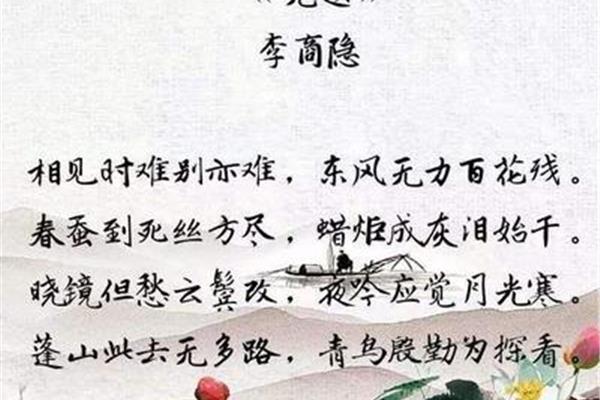 李商隐
相见时难别亦难，东风无力百花残。
春蚕到死丝方尽，蜡炬成灰泪始干。
晓镜但愁云鬓改，夜吟应觉月光寒。
蓬山此去无多路，青鸟殷勤为探看。